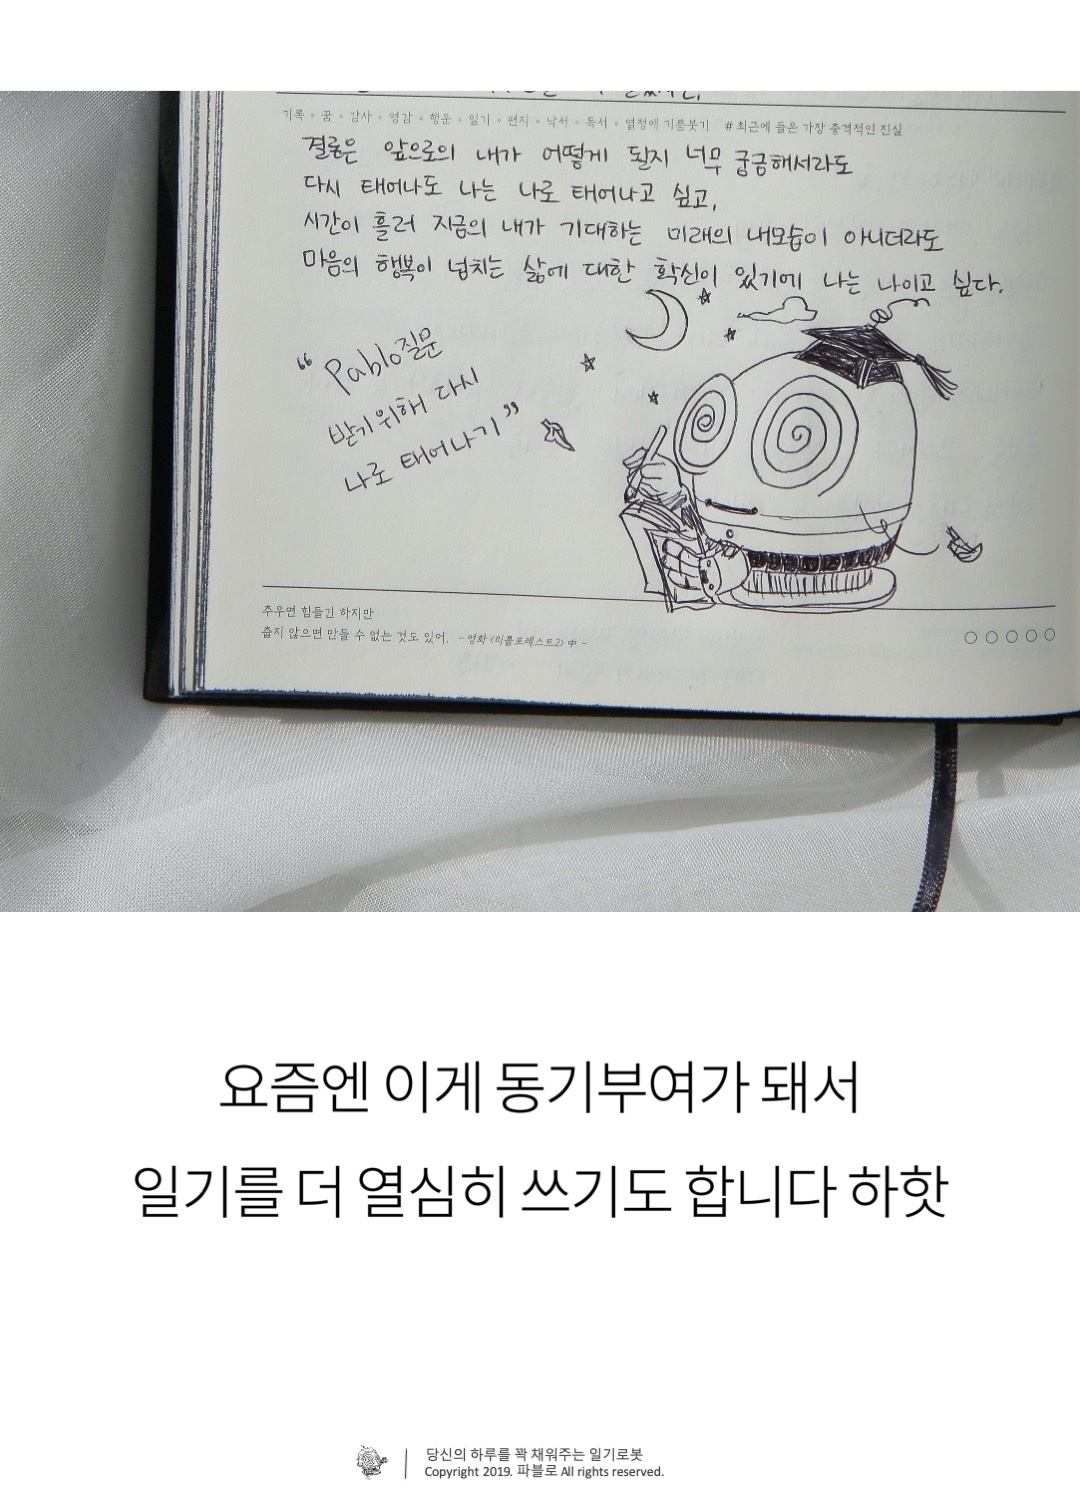 기록 ∘ 꿈 ∘ 감사 ∘ 영감 ∘ 행운 ∘ 일기 ∘ 편지 ∘ 낙서 ∘ 독서 ∘ 열정에 기름붓기 # 최근에 들은 가장 충격적인 진실
결론은 앞으로의 내가 어떻게 될지 너무 궁금해서라도
다시 태어나도 나는 나로 태어나고 싶고,
시간이 흘러 지금의 내가 기대하는 미래의 내모습이 아니더라도
마음의 행복이 넘치는 삶에 대한 확신이 있기에 나는 나이고 싶다.
“Pablo질문
받기위해 다시
나로 태어나기”
추우면 힘들긴 하지만
춥지 않으면 만들 수 없는 것도 있어. -영화 <리틀포레스트2> 中-
요즘엔 이게 동기부여가 돼서
일기를 더 열심히 쓰기도 합니다 하핫
당신의 하루를 꽉 채워주는 일기로봇
Copyright 2019. 파블로 All rights reserved.